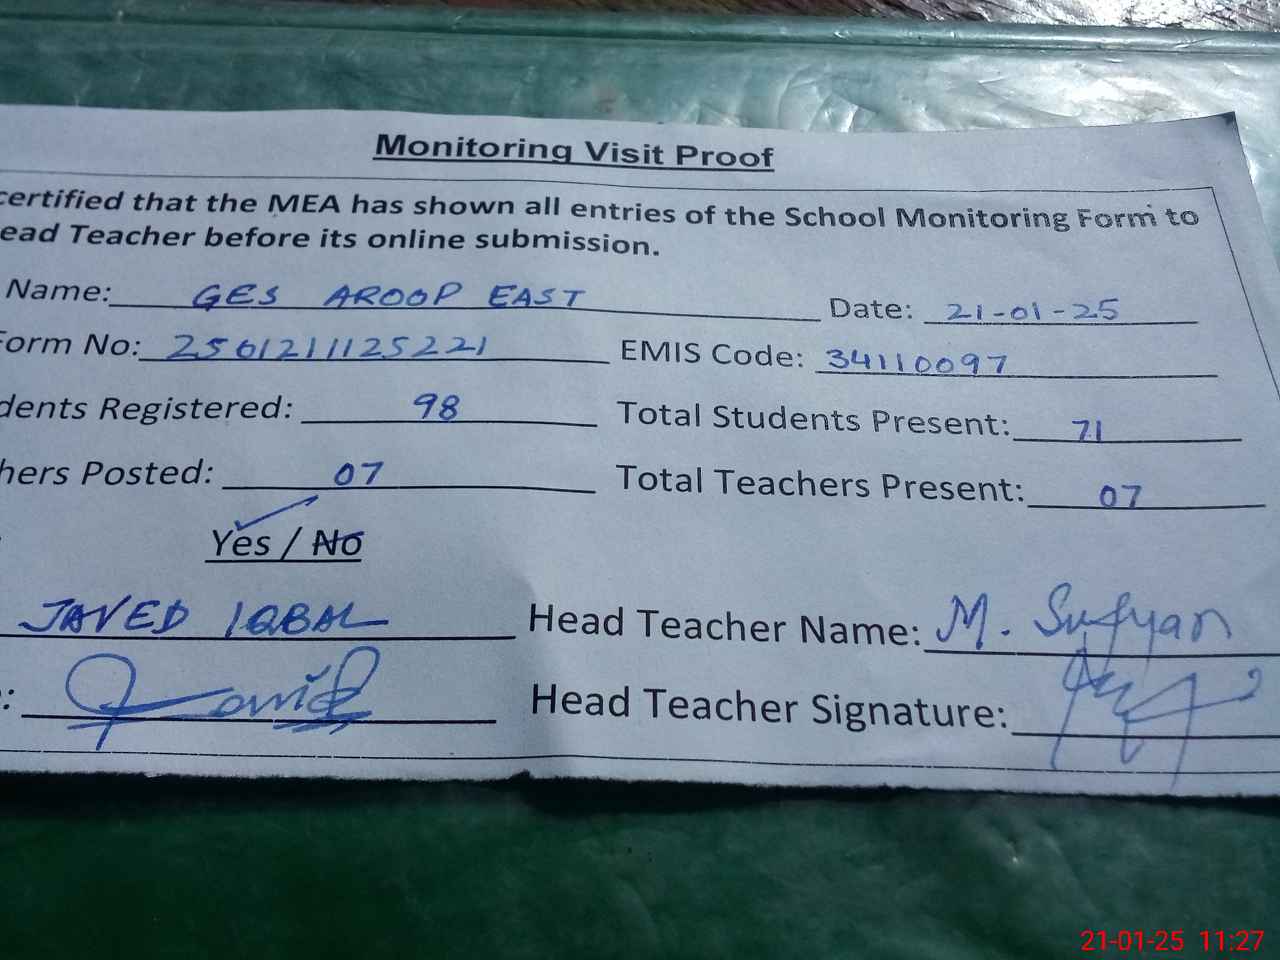 Monitoring Visit Proof
certified that the MEA has shown all entries of the School Monitoring Form to
ead Teacher before its online submission.
Name: GES AROOP EAST Date: 21-01-25
Form No: 2501211125221 EMIS Code: 34110097
dents Registered: 98 Total Students Present: 71
hers Posted: 07 Total Teachers Present: 07
Yes / No
JAVED IQBAL Head Teacher Name: M. Sufyan
: Javid Head Teacher Signature:
21-01-25 11:27